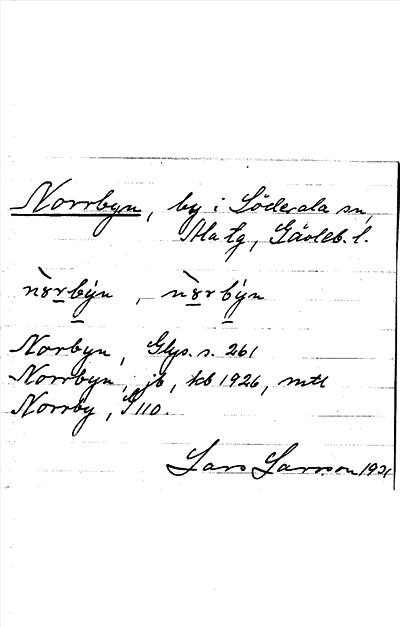 Norrbyn, by i Söderala sn,
Ala tg, Gävleb. l.
Norbyn, Glys. s. 261
Norrbyn, jb, kb 1926, mtl
Norrby, G 110.
Lars Larsson 1931